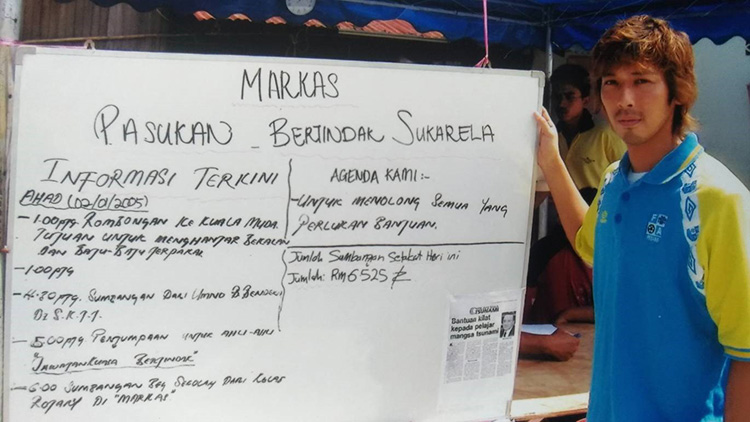 MARKAS
PASUKAN - BERTINDAK SUKARELA
INFORMASI TERKINI
AHAD (02/01/2005)
-1.00ptg. ROMBONGAN KE KUALA MUDA.
TUJUAN UNTUK MENGHANTAR BEKALAN
DAN BATU-BATU TERPAKAI
-1.00ptg
-4.30ptg. SUMBANGAN DARI UMNO B.
DI S.K.T.J.
-5.00ptg PERJUMPAAN UNTUK AHLI-AHLI
"JAWATANKUASA BERTINDAK"
-6.00 SUMBANGAN BEG SEKOLAH DARI
ROTARY DI "MARKAS"
AGENDA KAMI:-
-UNTUK MENOLONG SEMUA YANG
PERLUKAN BANTUAN.
Jumlah Sumbangan Setakat Hari ini
Jumlah: RM6525
Bantuan kilat
kepada pelajar
mangsa tsunami